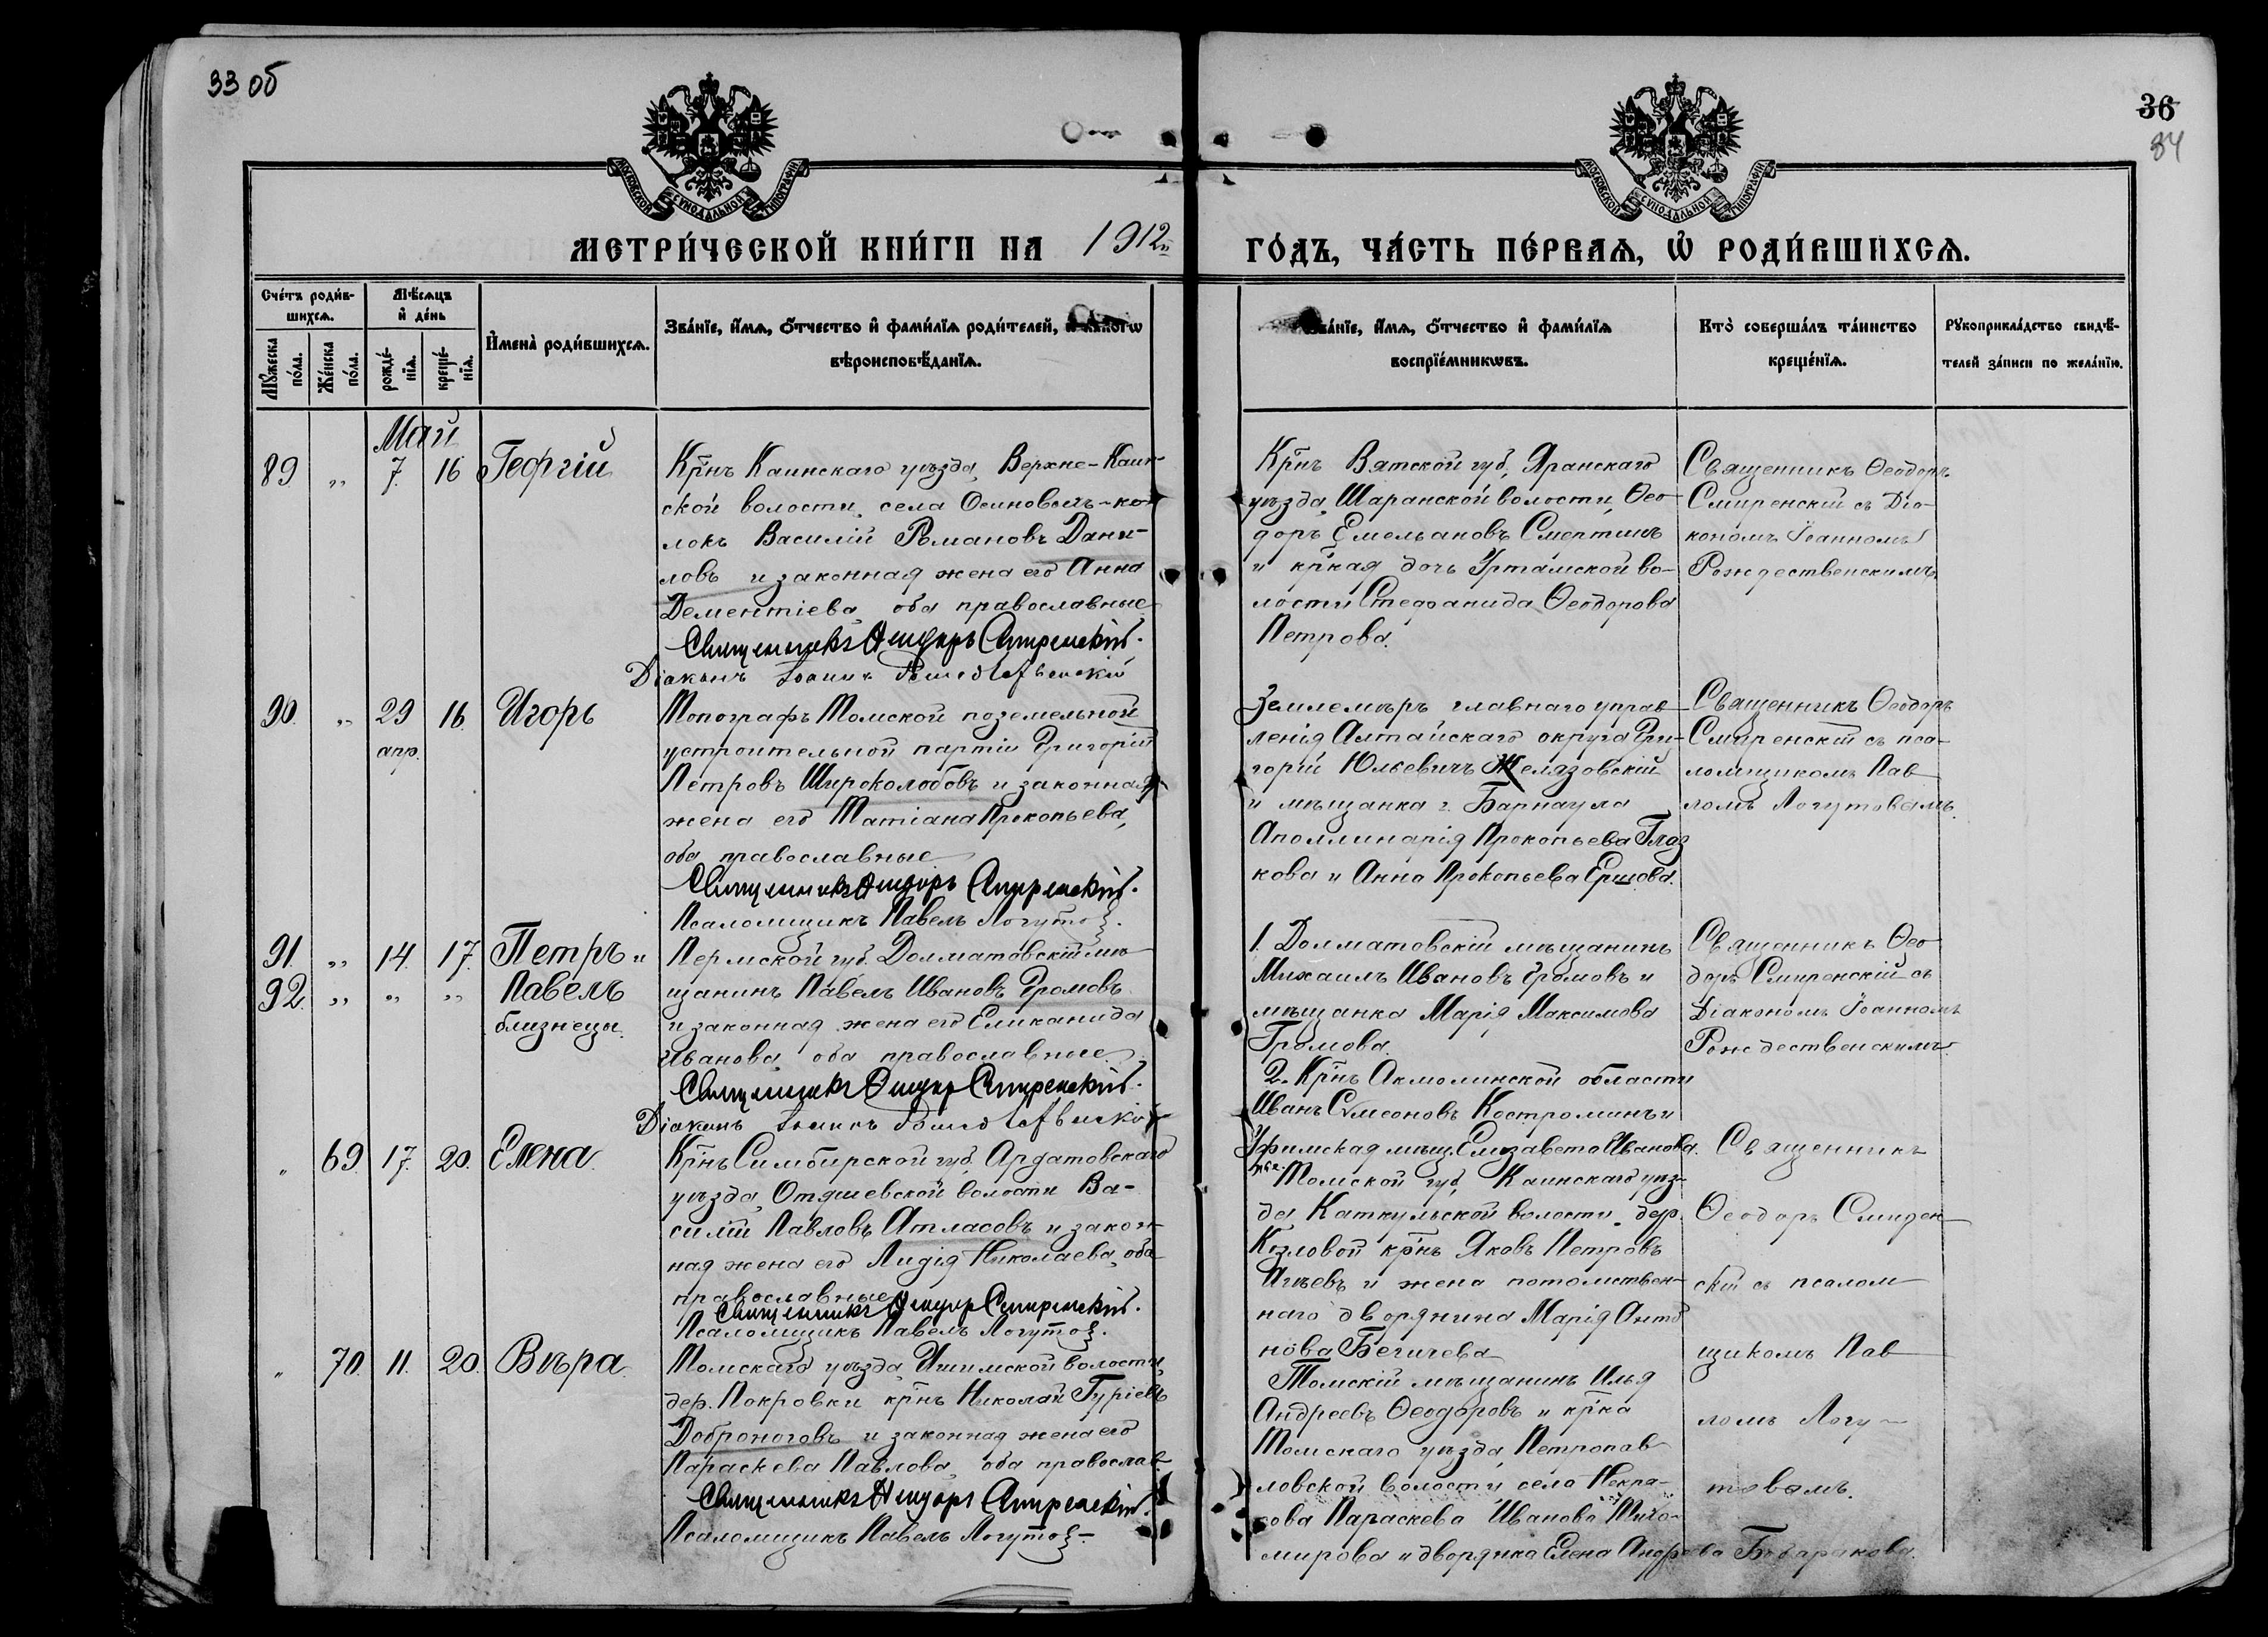 33 об
36
34
МОСКОВСКОЙ СУНОДАЛЬНОЙ ТИПОГРАФІИ
МОСКОВСКОЙ СУНОДАЛЬНОЙ ТИПОГРАФІИ
МЕТРИ́ЧЕСКОЙ КНИ́ГИ НА 1912
ГО́ДЪ, ЧА́СТЬ ПЕ́РВАЯ, Ѡ РОДИ́ВШИХСЯ.
Сче́тъ роди́в-
шихся.
Мѣ́сяцъ
и де́нь
Му́жеска
по́ла.
Же́нска
по́ла.
рожде́-
нїя.
креще́-
нїя.
И́мена̀ роди́вшихся.
Зва́нїе, и́мя, о́тчество и фами́лїя роди́телей, и
вѣроисповѣ́данїя.
Зва́нїе, и́мя, о́тчество и фами́лїя
воспрїе́мниковъ.
Кто̀ соверша́лъ та́инство
креще́нїя.
Рукоприкла́дство свидѣ́-
телей за́писи по жела́нїю.
Май
89 „ 7. 16 Георгій
Кр̄нъ Каинскаго уѣзда, Верхне-Каин-
ской волости, села Осиновыхъ-ко-
локъ Василій Романовъ Дани-
ловъ и законная жена его Анна
Дементіева, оба православные
Священникъ Ѳеодоръ Смиренскій.
Діаконъ Іоаннъ Рождественскій
Кр̄нъ Вятской губ, Яранскаго
уѣзда, Шаранской волости, Ѳео-
доръ Емельановъ Смертинъ
и кр̄кая дочь Уртамской во-
лости Стефанида Ѳеодорова
Петрова.
Священникъ Ѳеодоръ
Смиренскій съ Діа-
кономъ Іоанномъ
Рождественскимъ
90. „ 29 16. Игорь
апр.
Топографъ Томской поземельной
устроительной партіи Григорій
Петровъ Широколобовъ и законная
жена его Татіана Прокопьева,
оба православные
Священникъ Ѳеодоръ Смиренскій.
Псаломщикъ Павелъ Логутов.
Землемѣръ главнаго управ
ленія Алтайскаго округа Гри-
горій Юльевичъ Желязовскій
и мѣщанка г. Барнаула
Аполлинарія Прокопьева Глаз
кова и Анна Прокопьева Ершова.
Священникъ Ѳеодоръ
Смиренскій съ пса-
ломщикомъ Пав
ломъ Логутовымъ.
91. „ 14. 17. Петръ и
92. „ „ „ Павелъ
близнецы.
Пермской губ. Долматовскій мѣ
щанинъ Павелъ Ивановъ Громовъ
и законная жена его Еликанида
Иванова, оба православные.
Священникъ Ѳеодоръ Смиренскій.
Діаконъ Іоаннъ Рождественскій
1. Долматовскій мѣщанинъ
Михаилъ Ивановъ Громовъ и
мѣщанка Марія Максимова
Громова.
2. Кр̄нъ Акмолинской области
Иванъ Сѵмеоновъ Костроминъ и
Уфимская мѣщ. Елизавета Иванова.
Священникъ Ѳео
доръ Смиренскій съ
Діакономъ Іоанномъ
Рождественскимъ.
„ 69. 17. 20. Елена.
Кр̄нъ Симбирской губ, Ардатовскаго
уѣзда, Отяшевской волости Ва-
силій Павловъ Атласовъ и закон-
ная жена его Лидія Николаева, оба
православные
Священникъ Ѳеодоръ Смиренскій.
Псаломщикъ Павелъ Логутов.
Томской губ, Каинскаго уѣз-
да, Каткульской волости, дер.
Козловой кр̄нъ Яковъ Петровъ
и жена потомствен-
наго дворянина Марія Анто
нова Бегичева
Священникъ
Ѳеодоръ Смирен-
скій съ псалом
щикомъ Пав
ломъ Логу-
товымъ.
„ 70. 11. 20. Вѣра.
Томскаго уѣзда, Ишимской волости,
дер. Покровки кр̄нъ Николай Гуріевъ
Доброноговъ и законная жена его
Параскева Павлова, оба православ.
Священникъ Ѳеодоръ Смиренскій.
Псаломщикъ Павелъ Логутов.
Томскій мѣщанинъ Илья
Андреевъ Ѳеодоровъ и кр̄ка
Томскаго уѣзда, Петропав
ловской волости села Некра-
сова Параскева Иванова Тихо-
мирова и дворянка Елена Андреева